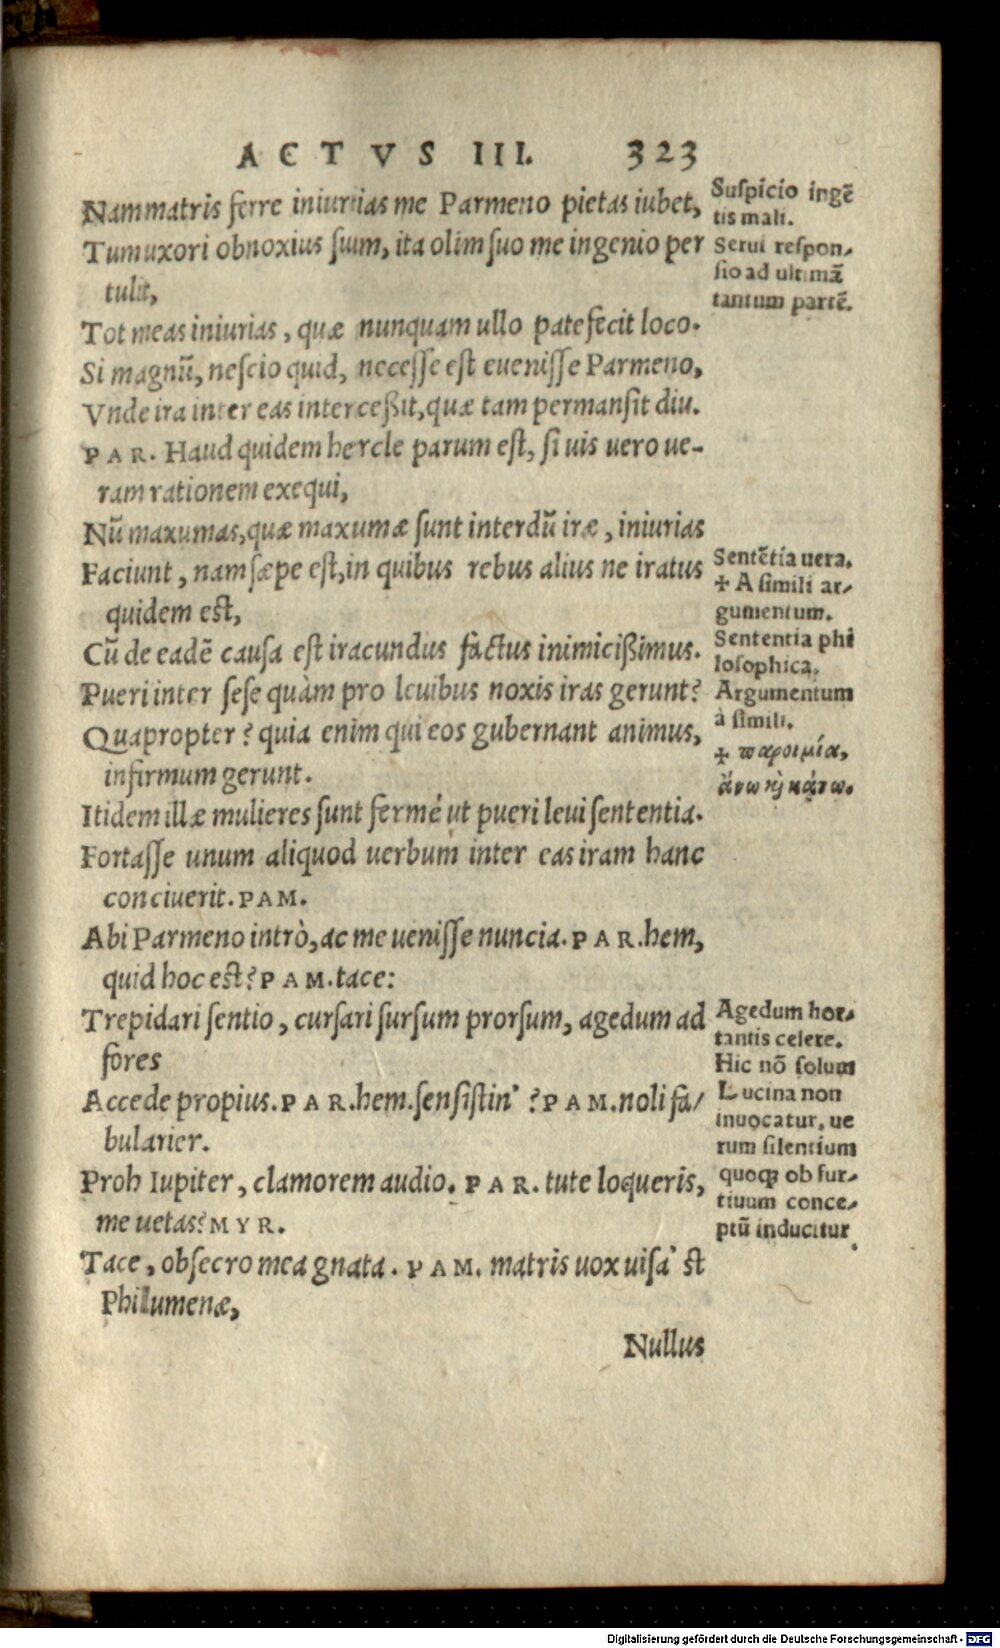 ACTVS III. 323
Nam matris ferre iniurias me Parmeno pietas iubet,
Tum uxori obnoxius sum, ita olim suo me ingenio per
tulit,
Tot meas iniurias, quæ nunquam ullo patefecit loco.
Si magnũ, nescio quid, necesse est euenisse Parmeno,
Vnde ira inter eas interceßit, quæ tam permansit diu.
PAR. Haud quidem hercle parum est, si uis uero ue-
ram rationem exequi,
Nũ maxumas, quæ maxumæ sunt interdũ iræ, iniurias
Faciunt, nam sæpe est, in quibus rebus alius ne iratus
quidem est,
Cũ de eadẽ causa est iracundus factus inimicißimus.
Pueri inter sese quàm pro leuibus noxis iras gerunt?
Quapropter? quia enim qui eos gubernant animus,
infirmum gerunt.
Itidem illæ mulieres sunt fermé ut pueri leui sententia.
Fortasse unum aliquod uerbum inter eas iram hanc
conciuerit. PAM.
Abi Parmeno intrò, ac me uenisse nuncia. PAR. hem,
quid hoc est? PAM. tace:
Trepidari sentio, cursari sursum prorsum, agedum ad
fores
Accede propius. PAR. hem. sensistin'? PAM. noli fa/
bularier.
Proh Iupiter, clamorem audio. PAR. tute loqueris,
me uetas? MYR.
Tace, obsecro mea gnata. PAM. matris uox uisa' st
Philumenæ,
Nullus
Suspicio ingẽ
tis mali.
Serui respon-
sio ad ultimã
tantum partẽ.
Sentẽtia uera.
+ A simili ar-
gumentum.
Sententia phi
losophica.
Argumentum
à simili.
+ παροιμία,
ἄνω ϗ κάτω.
Agedum hor-
tantis celere.
Hic nõ solum
Lucina non
inuocatur, ue
rum silentium
quoqꝫ ob fur-
tiuum conce-
ptũ inducitur.
Digitalisierung gefördert durch die Deutsche Forschungsgemeinschaft - DFG